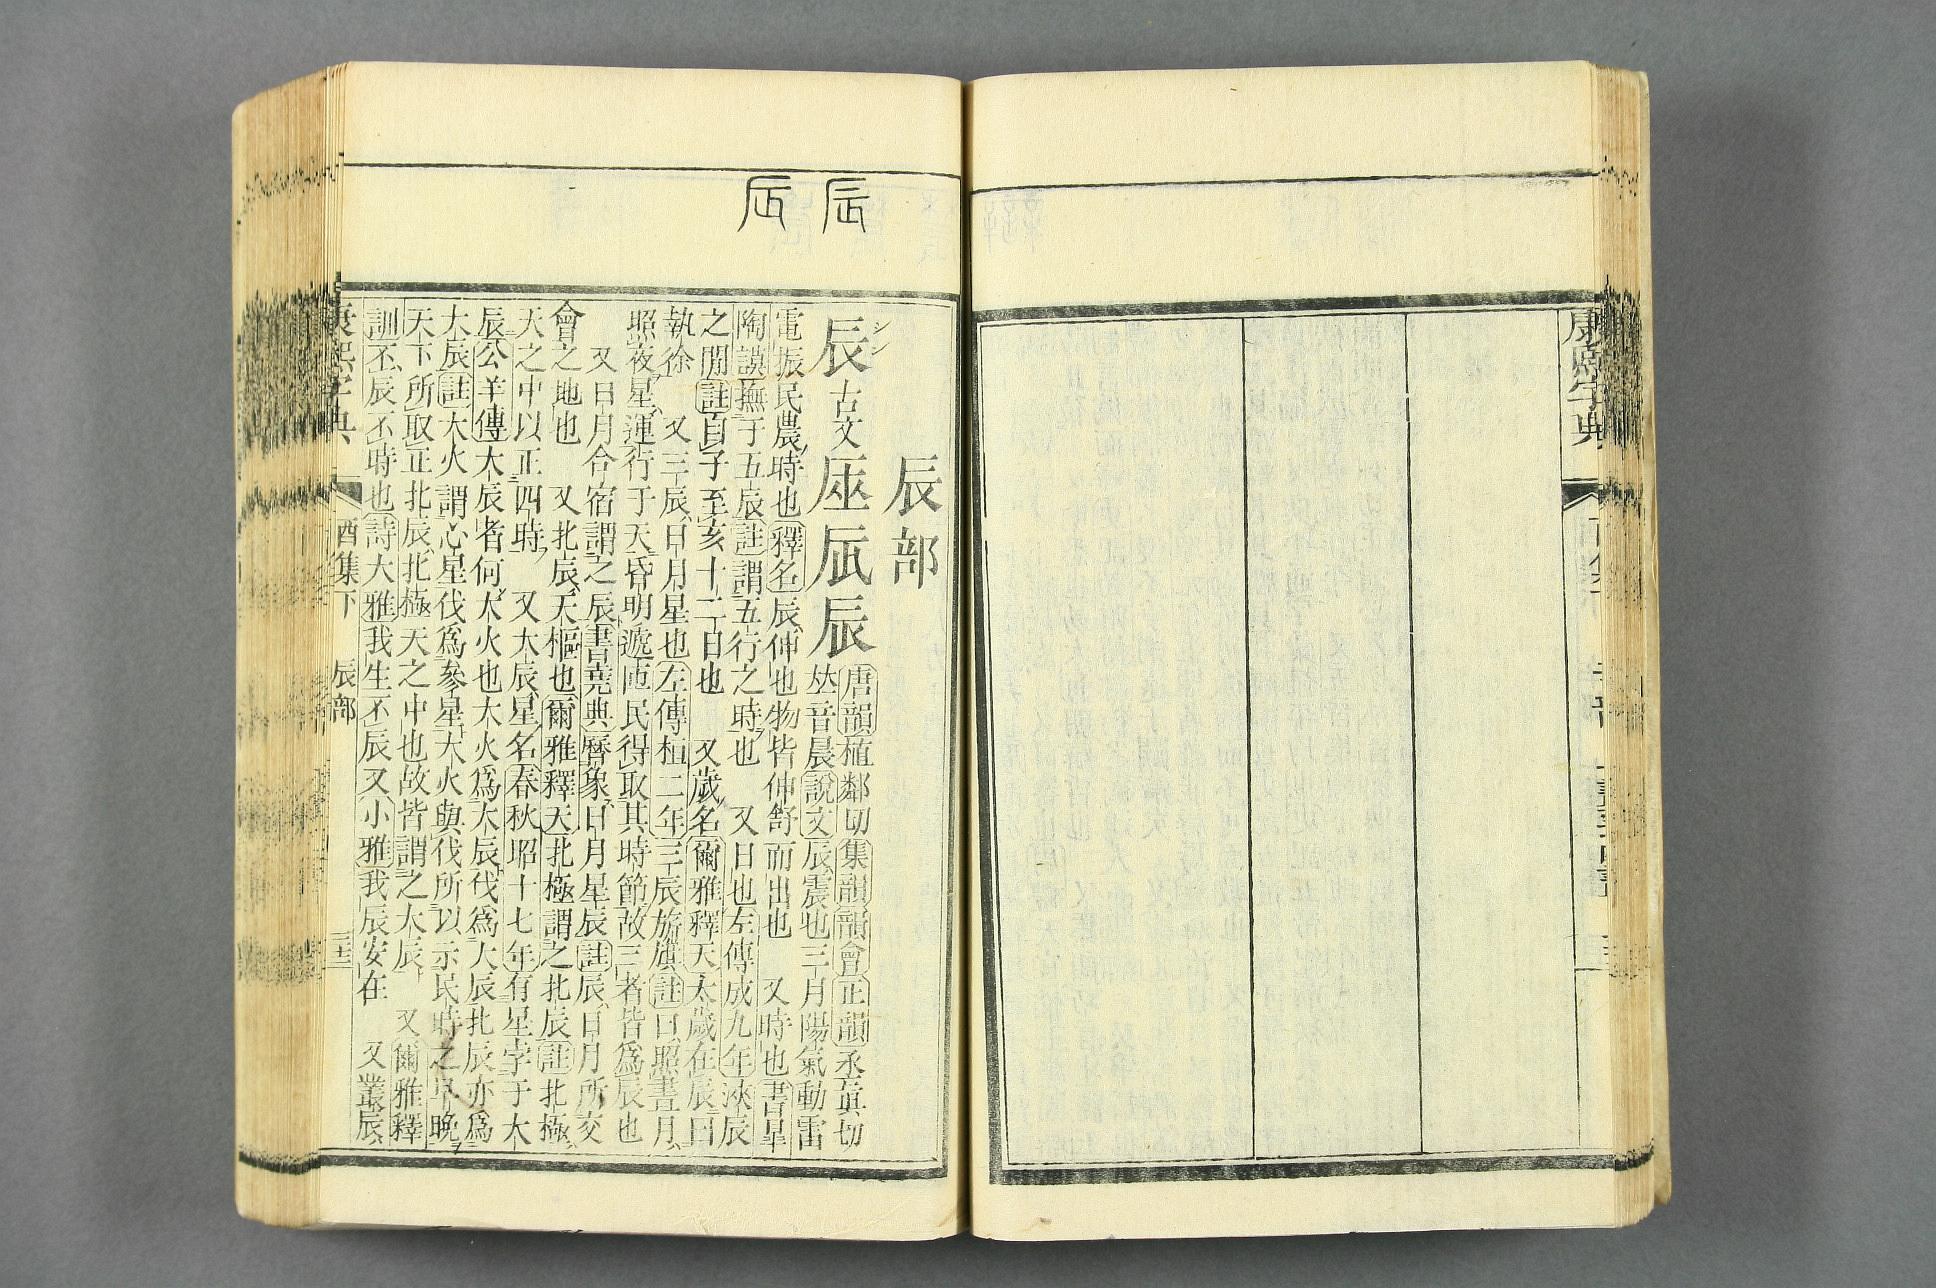 康熙字典
辰 𠨷
辰部
辰 シン 古文 𨑃 𠨷 辰
唐韻植鄰切集韻韻會正韻丞眞切
𠀤音晨說文辰震也三月陽氣動雷
電振民農時也釋名辰伸也物皆伸舒而出也 又時也書皐
陶謨撫于五辰註謂五行之時也 又日也左傳成九年浹辰
之閒註自子至亥十二日也 又歲名爾雅釋天太歲在辰曰
執徐 又三辰日月星也左傳桓二年三辰旂旗註日照晝月
照夜星運行于天昏明遞匝民得取其時節故三者皆爲辰也
又日月合宿謂之辰書堯典曆象日月星辰註辰日月所交
會之地也 又北辰天樞也爾雅釋天北極謂之北辰註北極
天之中以正四時 又大辰星名春秋昭十七年有星孛于大
辰公羊傳大辰者何大火也大火爲大辰伐爲大辰北辰亦爲
大辰註大火謂心星伐爲參星大火與伐所以示民時之早晚
天下所取正北辰北極天之中也故皆謂之大辰 又爾雅釋
訓不辰不時也詩大雅我生不辰又小雅我辰安在 又叢辰
康熙字典 酉集下 辰部